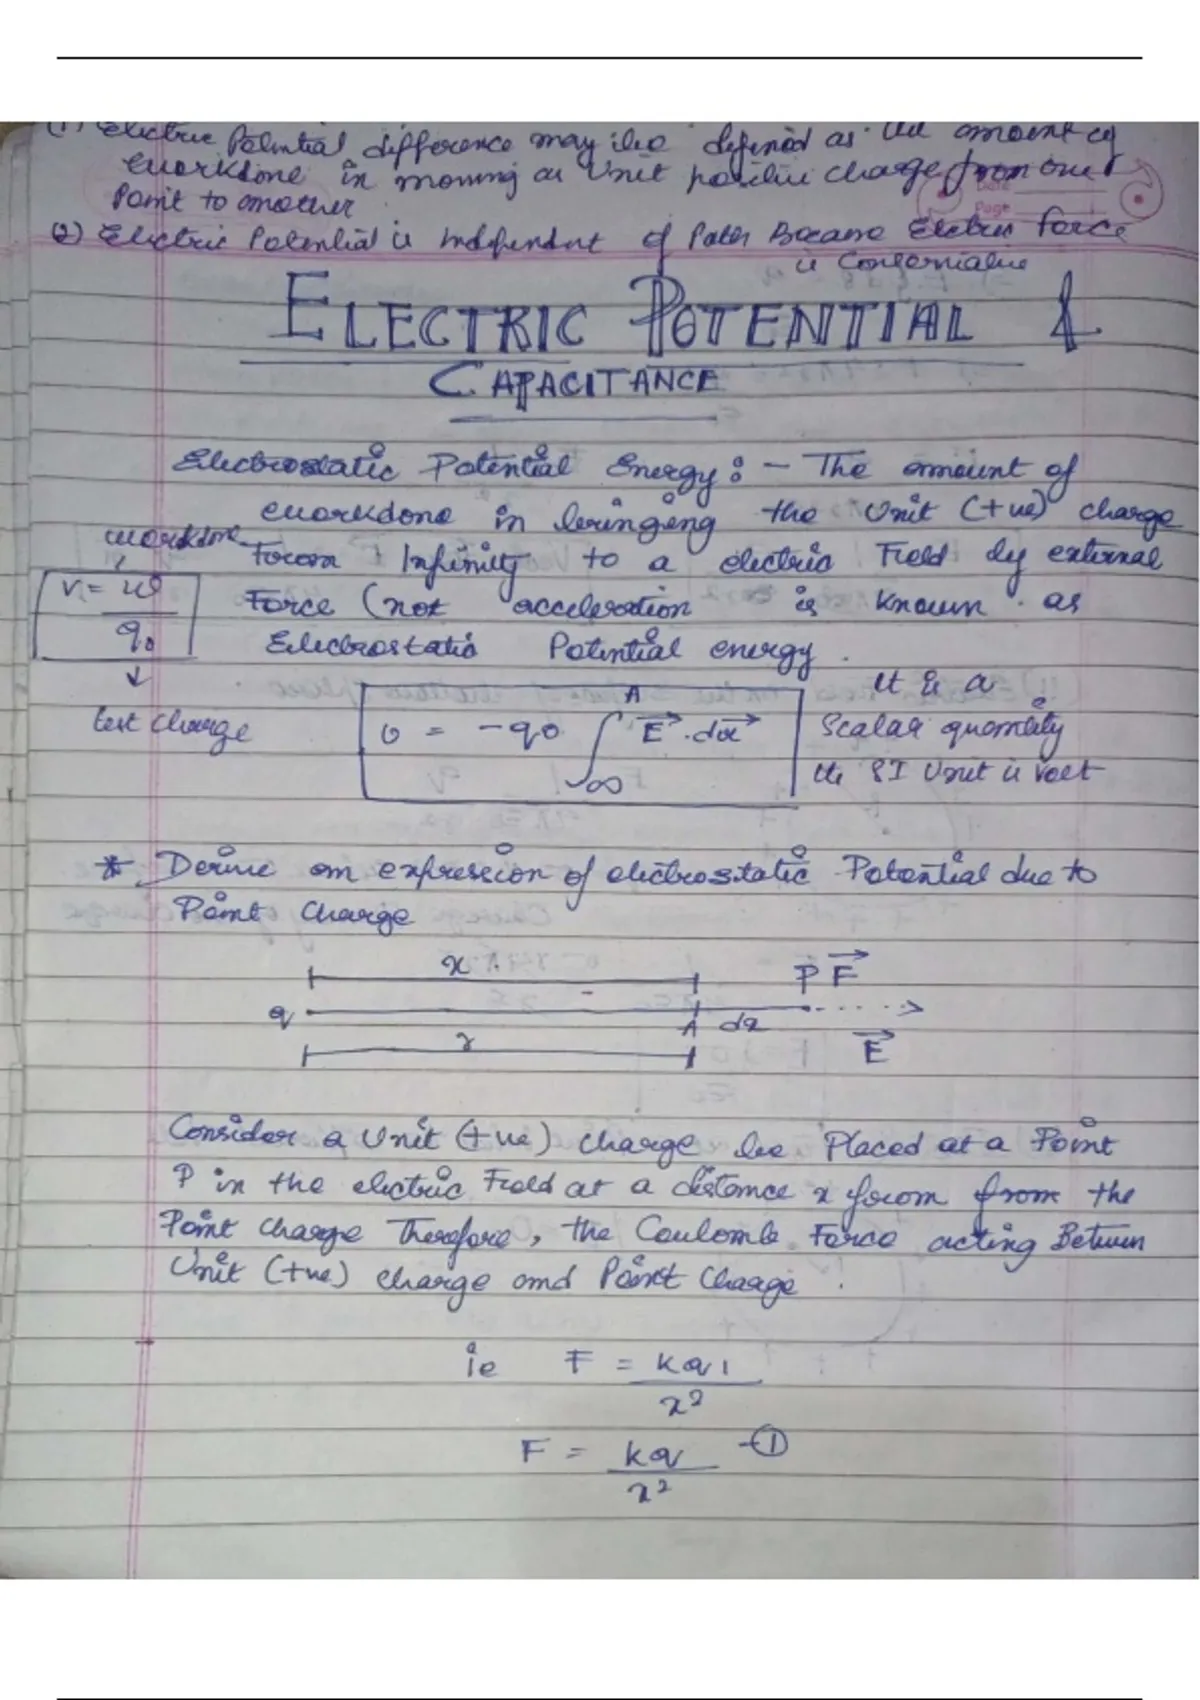 (1) Electric Potential difference may be defined as the amount of
workdone in moving a unit positive charge from one
Point to another
Date
Page
(2) Electric Potential is independent of Path Because Electric force
is Conservative
ELECTRIC POTENTIAL &
CAPACITANCE
Electrostatic Potential Energy :- The amount of
workdone in bringing the Unit (+ve) charge
workdone
from Infinity to a electric Field by external
V = w
Force (not acceleration is known as
q0
Electrostatic Potential energy.
It is a
test charge
υ = -q0 ∫ A ∞ E→.dx→
Scalar quantity
its SI Unit is volt
* Derive an expression of electrostatic Potential due to
Point Charge
x
P F→
q
A dx
r
E→
Consider a Unit (+ve) charge be Placed at a Point
P in the electric Field at a distance x from from the
Point Charge Therefore, the Coulomb Force acting Between
Unit (+ve) charge and Point Charge.
ie F = kq1
x²
F = kq -①
x²